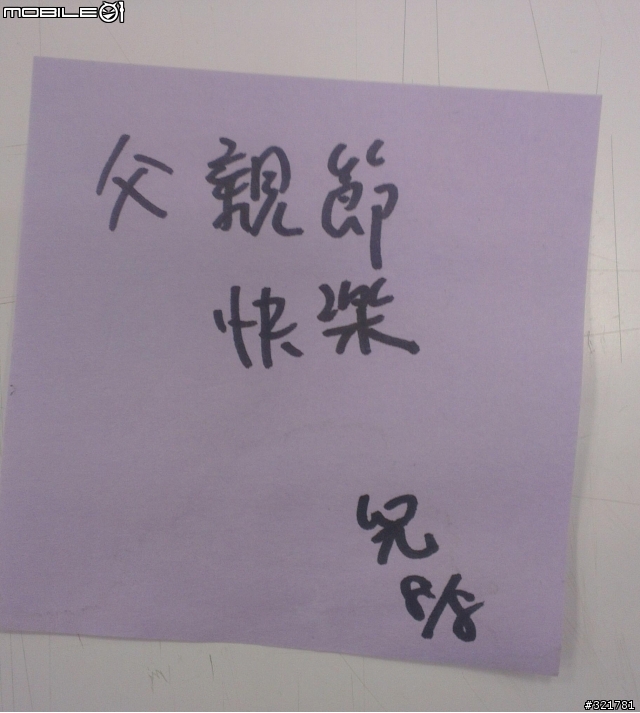 MOBILE01
父親節
快樂
兒
8/8
#321781